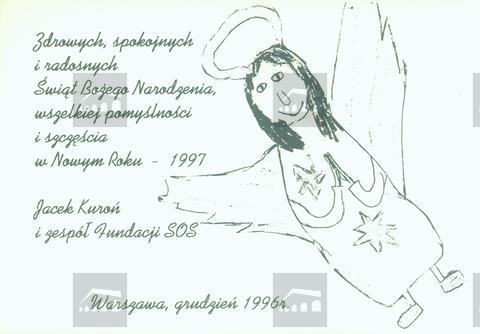 Zdrowych, spokojnych
i radosnych
Świąt Bożego Narodzenia,
wszelkiej pomyślności
i szczęścia
w Nowym Roku - 1997
Jacek Kuroń
i zespół Fundacji SOS
Warszawa, grudzień 1996r.